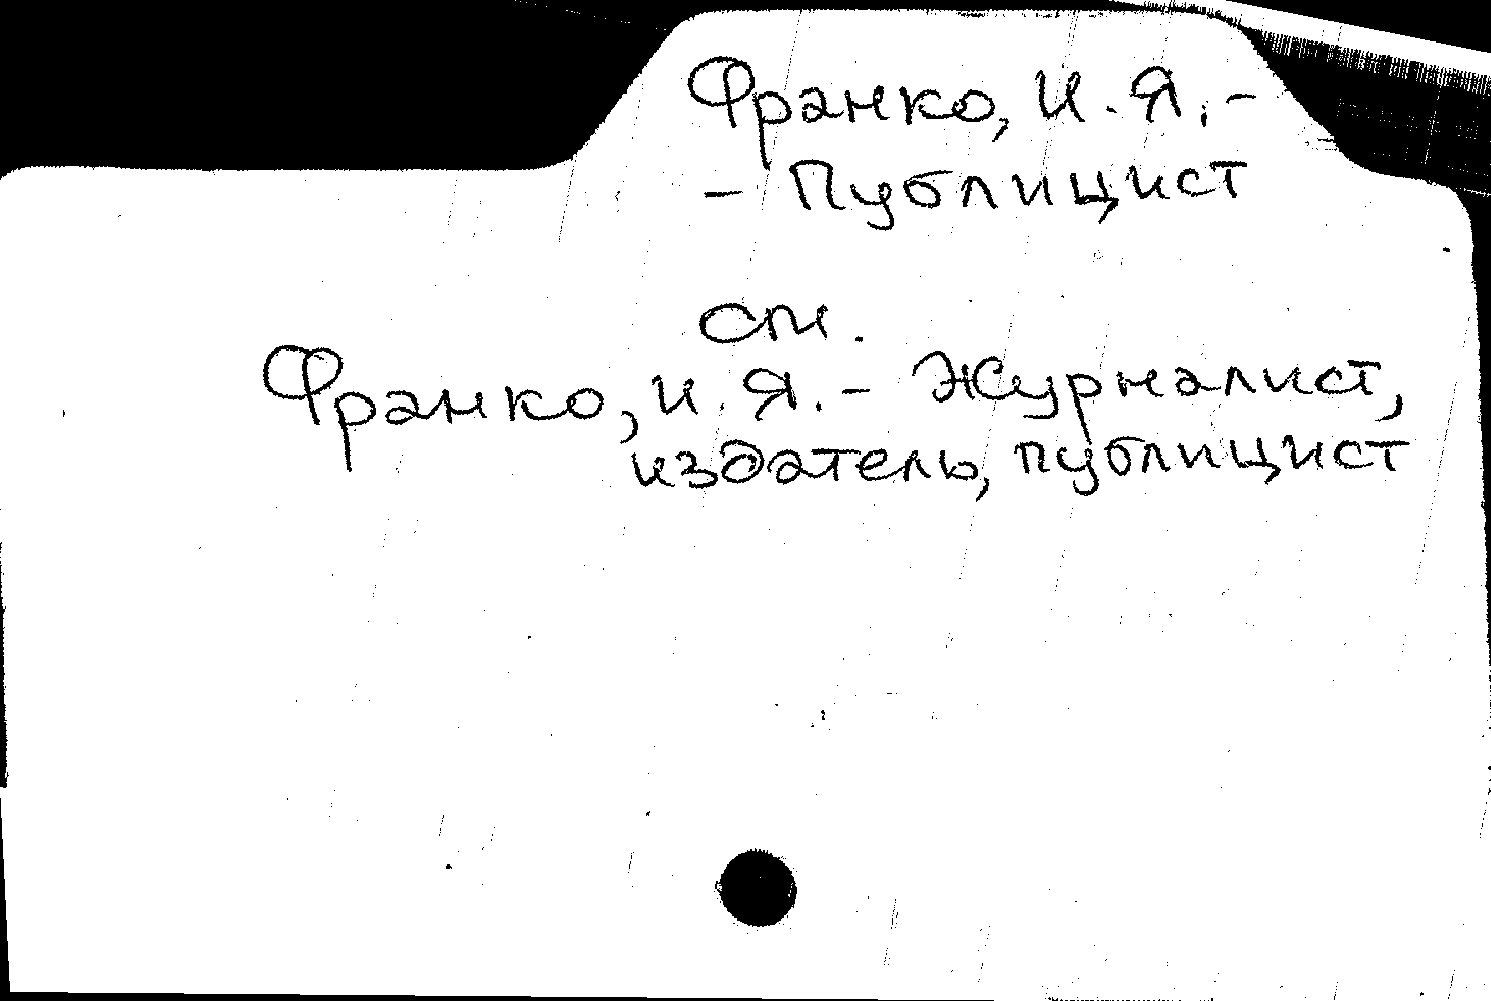 Франко, И. Я. -
- Публицист
см.
Франко, И. Я. - Журналист,
издатель, публицист